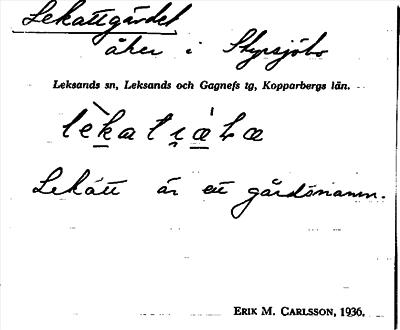 Lekattgärdet
åker i Styrsjöbo
Leksands sn, Leksands och Gagnefs tg, Kopparbergs län.
Lekátt är ett gårdsnamn.
ERIK M. CARLSSON, 1936.